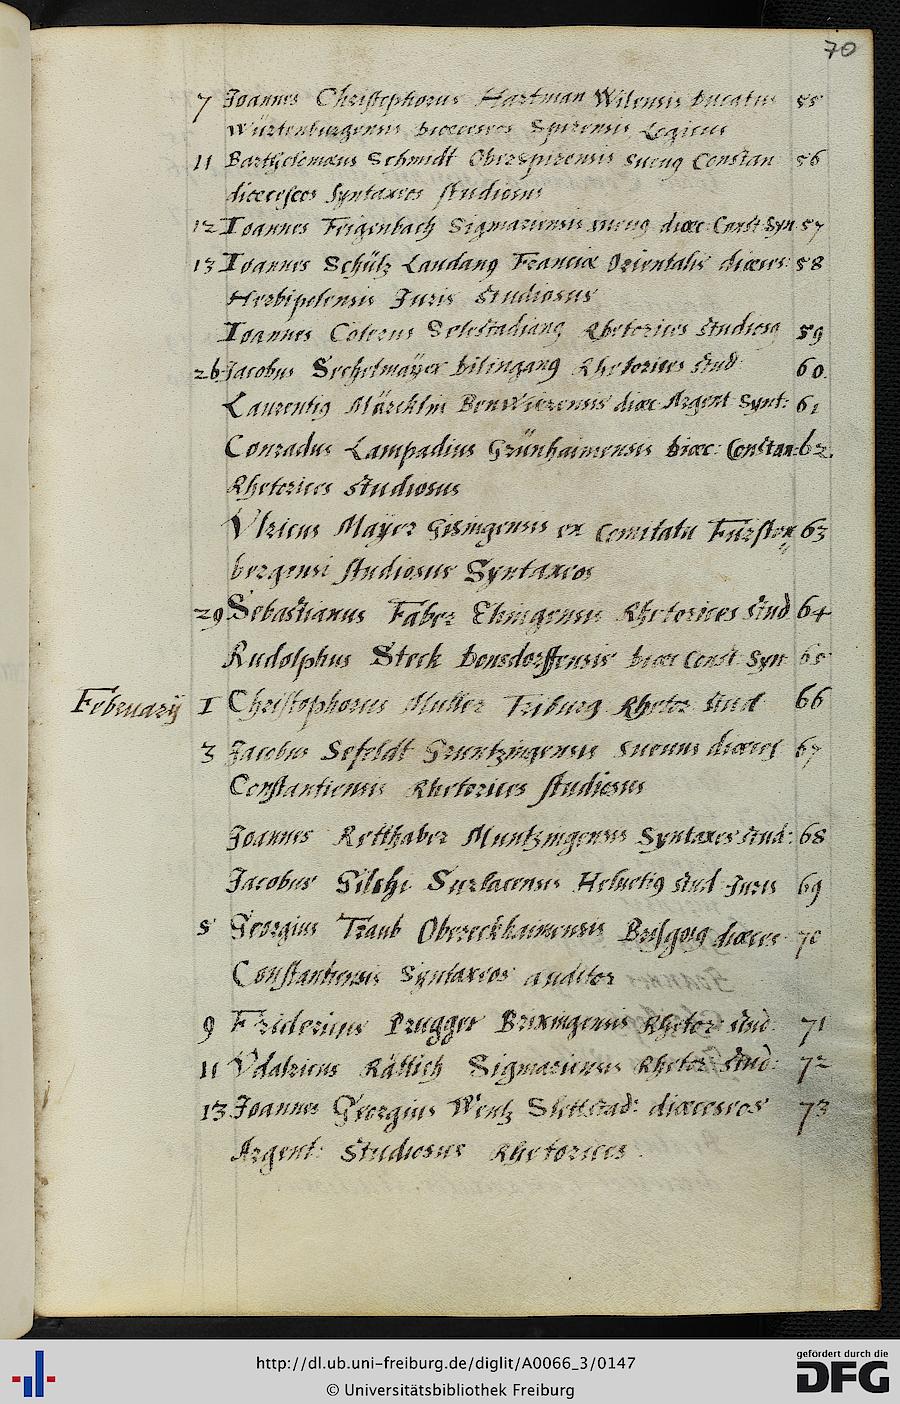 70
7 Joannes Christophorus Hartman Wilensis Ducatus 55
Würtenburgensis dioeceseos Spirensis Logicus
11 Bartholomæus Schmidt Oberspirensis Suevus Constan 56
dioeceseos Syntaxeos studiosus
12 Ioannes Feigenbach Sigmariensis suevus dioec: Const Syn 57
13 Ioannes Schülz Laudanus Franciæ Orientalis dioeces: 58
Herbipolensis Juris Studiosus
Ioannes Coterus Selestadianus Rhetorices studiosus 59
26 Jacobus Sechelmaÿer Dilinganus Rhetorices stud 60.
Laurentius Märcklin Benwirensis dioec Argent Synt: 61
Conradus Lampadius Grünhaimensis dioec: Constan: 62.
Rhetorices studiosus
Vlricus Maÿer Gisingensis ex Comitatu Fürsten= 63
bergensi studiosus Syntaxeos
29 Sebastianus Faber Ehingensis Rhetorices stud 64
Rudolphus Steck Donsdorffensis dioec Const: Syn 65
Februarij 1 Christophorus Muller Friburg Rhetor: stud 66
3 Jacobus Sefeldt Gruntzingensis Suevus dioeces 67
Constantiensis Rhetorices studiosus
Joannes Retthaber Muntzingensis Syntaxeos stud: 68
Jacobus Gilchi Surlacensis Helvetius stud Juris 69
5 Georgius TraubObereckhaimensis Brisgoius dioeces 70
Constantiensis Syntaxeos auditor
9 Fridericus Prugger Brixingensis Rhetor: stud: 71
11 Vdalricus Rättich Sigmariensis Rhetor: stud: 72
13 Joannes Georgius Wentz Slettstad: dioeceseos 73
Argent: Studiosus Rhetorices.
http://dl.ub.uni-freiburg.de/diglit/A0066_3/0147
© Universitätsbibliothek Freiburg
gefördert durch die
DFG